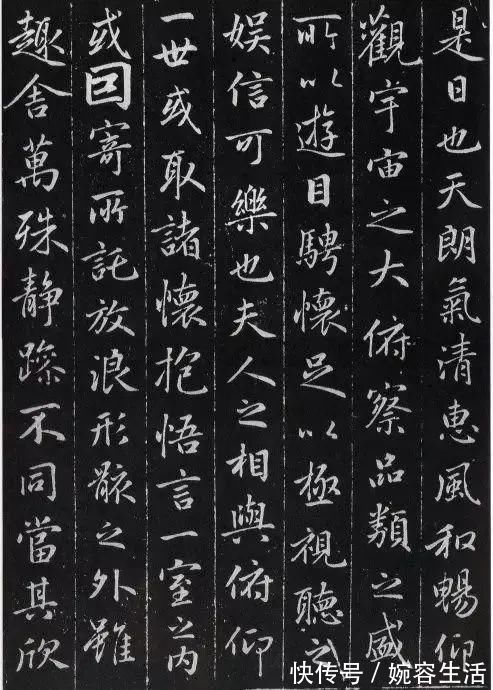 是日也天朗氣清惠風和暢仰
觀宇宙之大俯察品類之盛
所以遊目騁懷足以極視聽之
娛信可樂也夫人之相與俯仰
一世或取諸懷抱悟言一室之内
或回寄所託放浪形骸之外雖
趣舍萬殊静躁不同當其欣
快传号 / 婉容生活